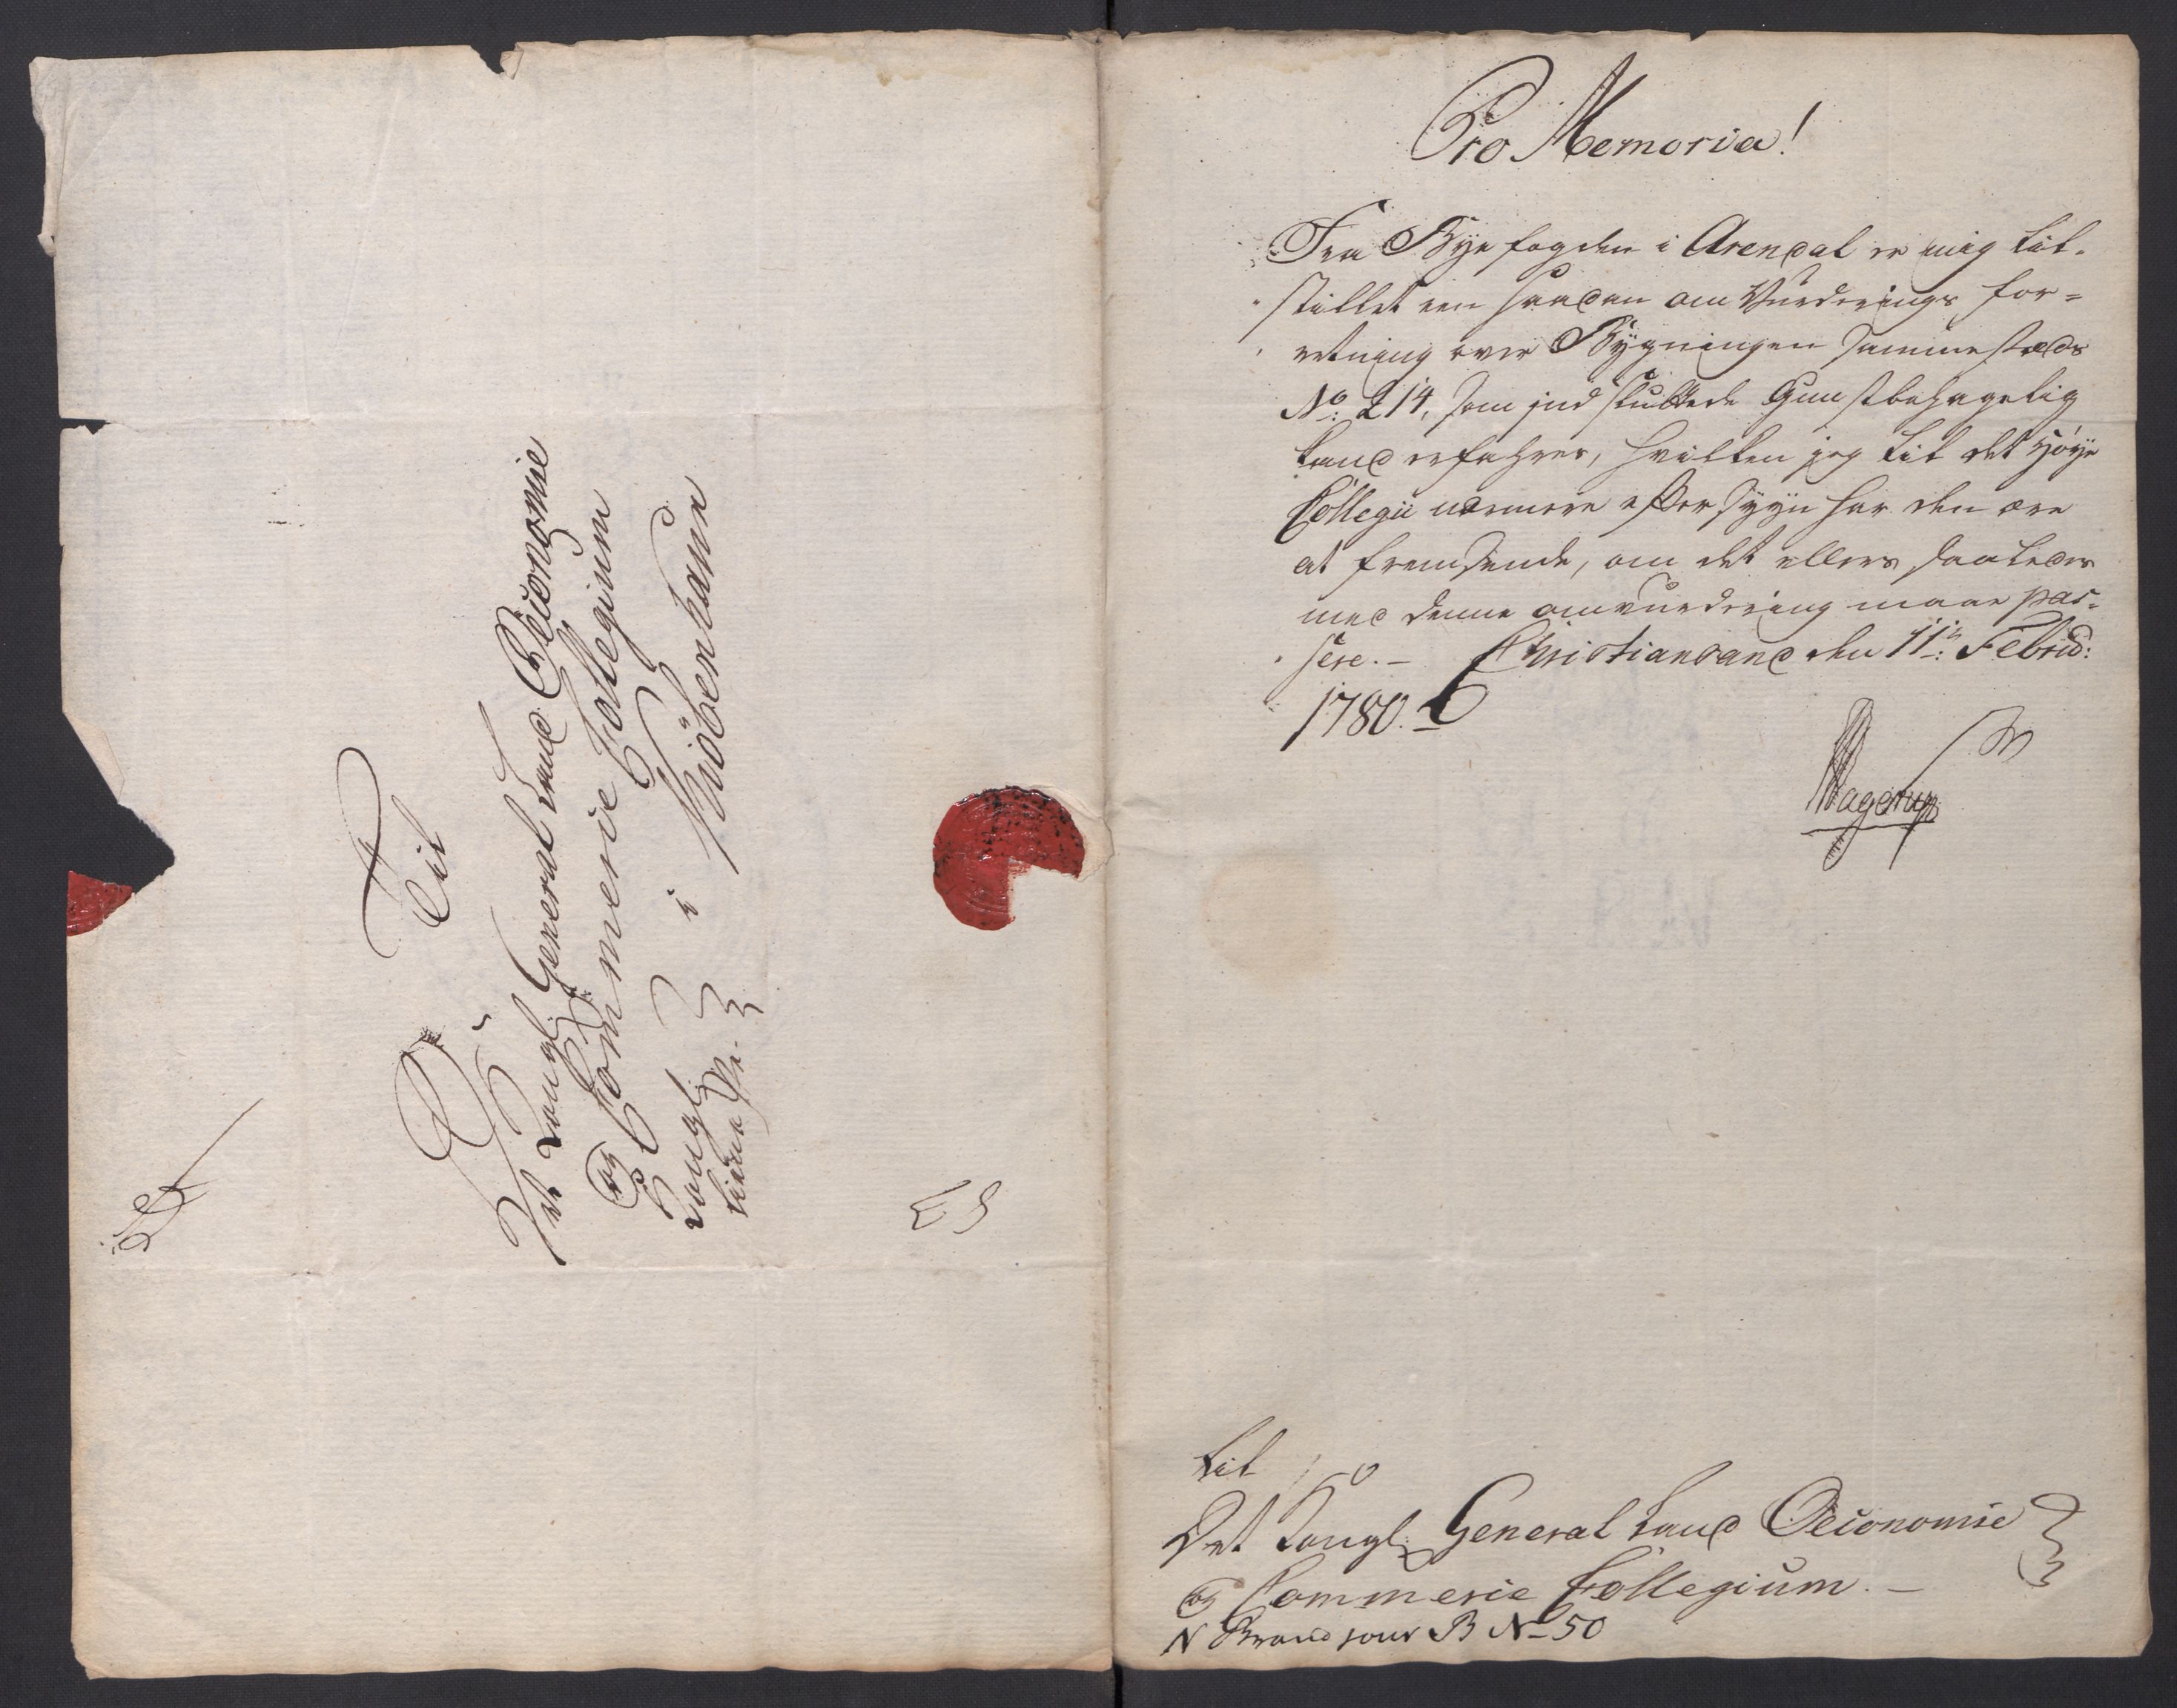 Til
Det Kongl: General Land Oeconomie
og Commerie Collegium
i Kiöbenhavn
Kongl:
Pro Memoria!
Fra Byefogden i Arendal er mig til-
stillet een saadan om Vurderings for=
retning over Bygningen sammestæds
No: 214, som indsluttede Gunstbehagelig
land erfahres, hvilken jeg til det Høye
Collegii nærmere eftersyyn har den ære
at fremsende, om det ellers saaledes
med denne omvurdering maae pas-
sere. – Christiansand den 11te: Febru:
1780.
Hagerup
Til
Det Kongl: General Land Oeconomie
og Commerie Collegium. –
N Brand Jour B No 50